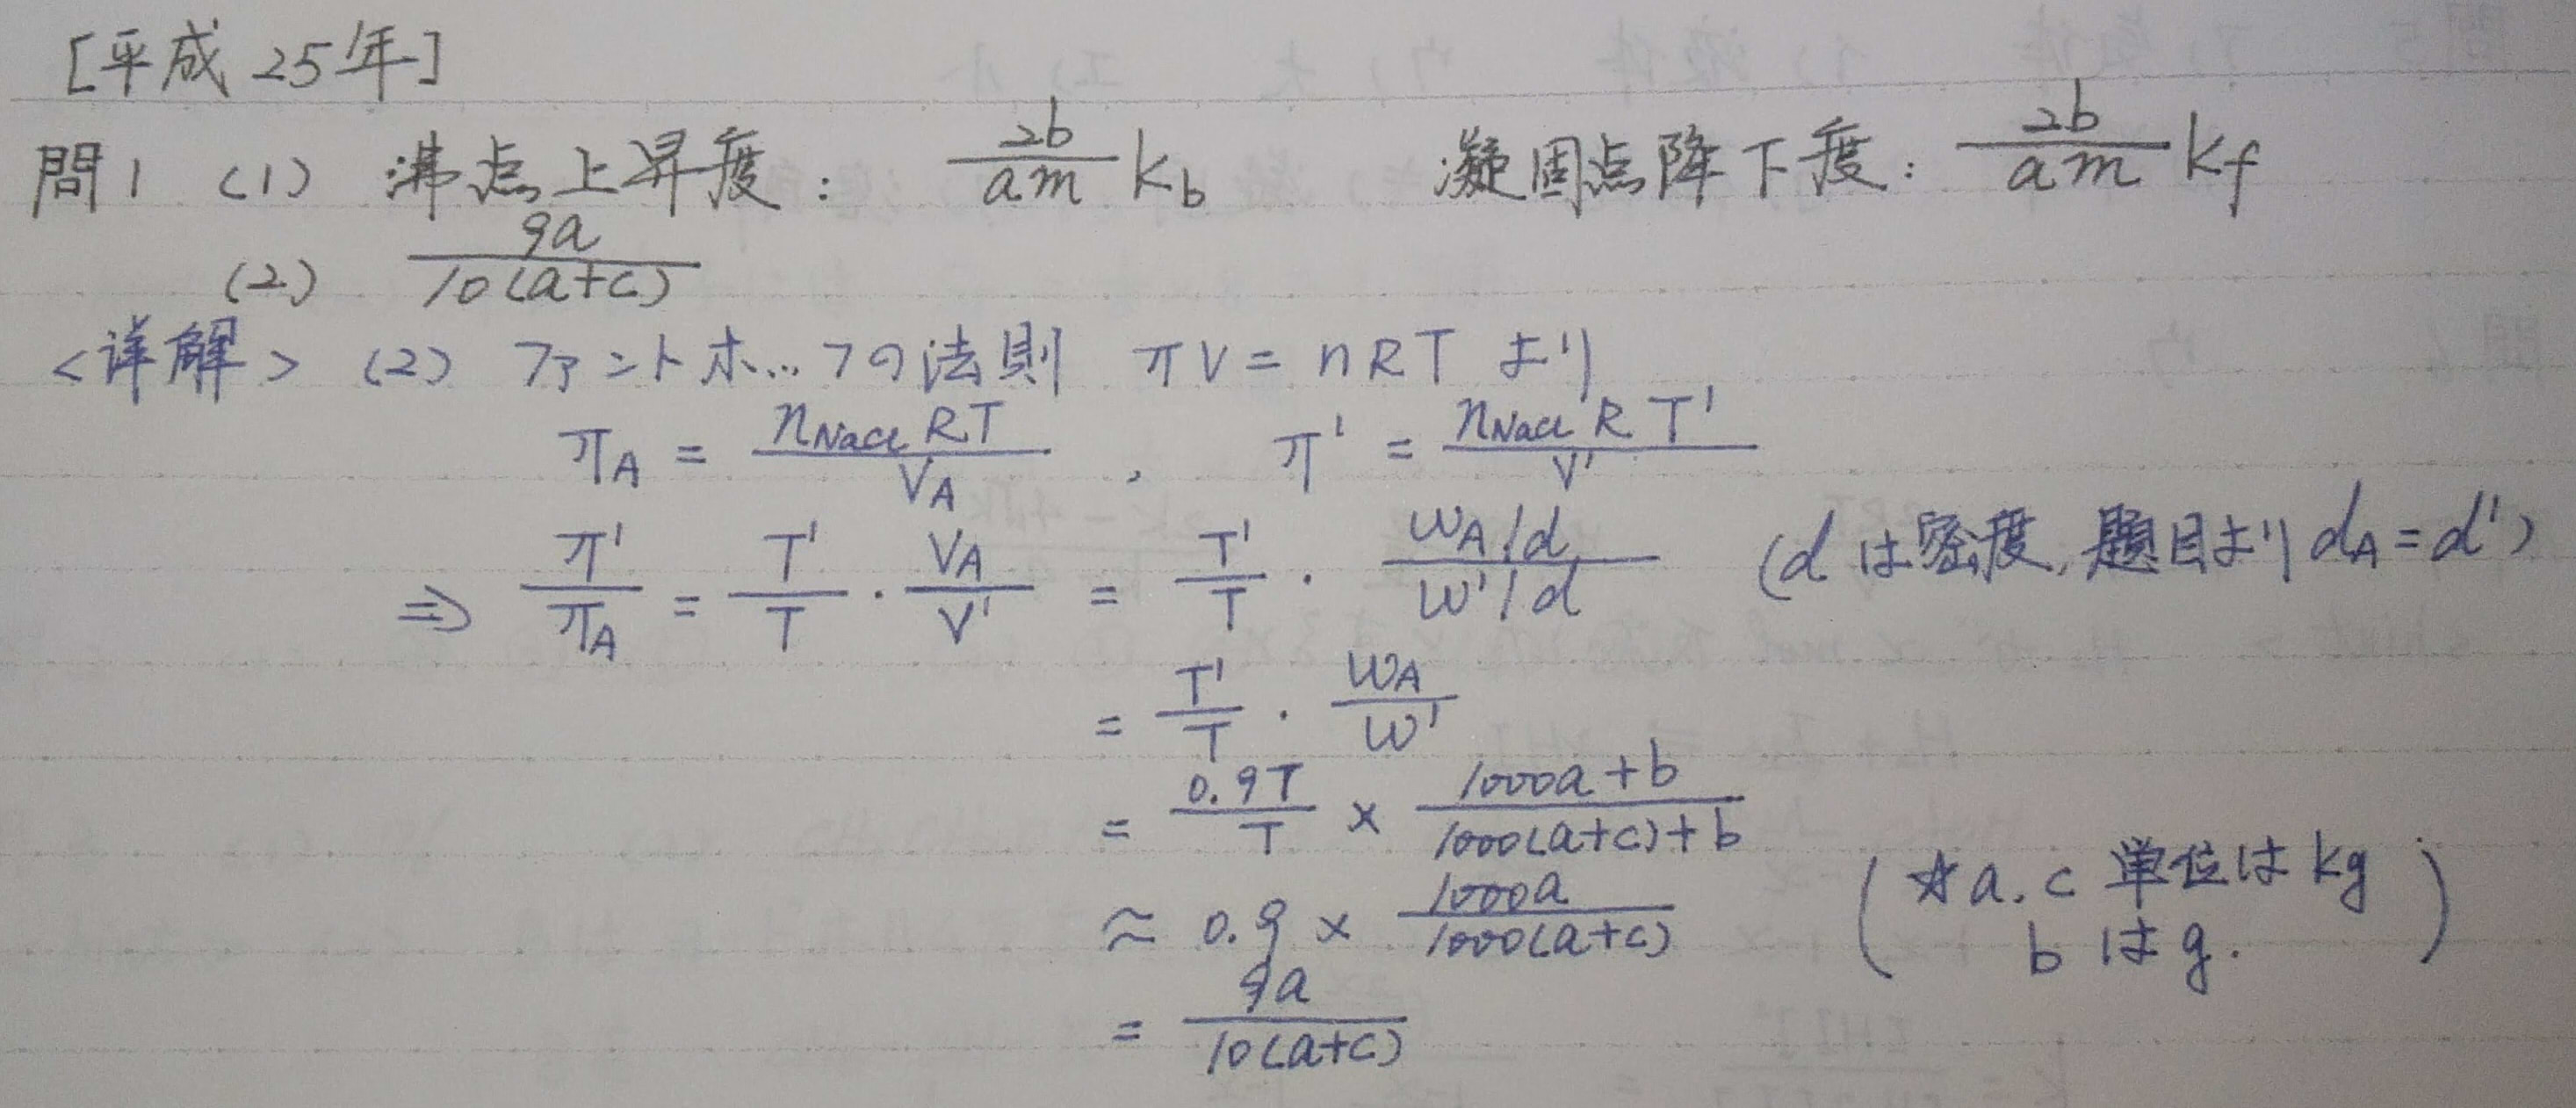 [平成25年]
問1 (1) 沸点上昇度: 2b/am kb 凝固点降下度: 2b/am kf
(2) 9a/10(a+c)
<详解> (2) ファントホ…フの法則 πV = nRT より
πA = nNaCl RT/VA , π' = nNaCl R T'/V'
⇒ π'/πA = T'/T · VA/V' = T'/T · (WA/d)/(W'/d) (d は密度, 題目より dA = d')
= T'/T · WA/W'
= 0.9T/T × (1000a+b)/(1000(a+c)+b)
≈ 0.9 × 1000a/1000(a+c) (☆a.c 単位は kg
= 9a/10(a+c) b は g.)